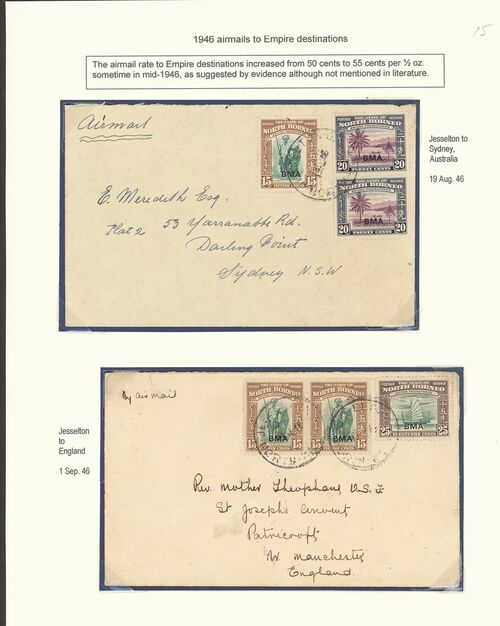 1946 airmails to Empire destinations
15
The airmail rate to Empire destinations increased from 50 cents to 55 cents per ½ oz.
sometime in mid-1946, as suggested by evidence although not mentioned in literature.
Airmail
THE STATE OF
NORTH BORNEO
BMA
15 15
THE STATE OF
NORTH BORNEO
BMA
20 20
TWENTY CENTS
NORTH BORNEO
BMA
20 20
TWENTY CENTS
Jesselton to
Sydney,
Australia
19 Aug. 46
E. Meredith Esq.
Flat 2 53 Yarranabbe Rd.
Darling Point
Sydney N.S.W
Jesselton
to
England
1 Sep. 46
By air mail
NORTH BORNEO
BMA
15 15
NORTH BORNEO
BMA
15 15
NORTH BORNEO
BMA
25 25
TWENTY FIVE CENTS
Rev. Mother Theophane
St Joseph's Convent
Patricroft
Nr. Manchester
England.